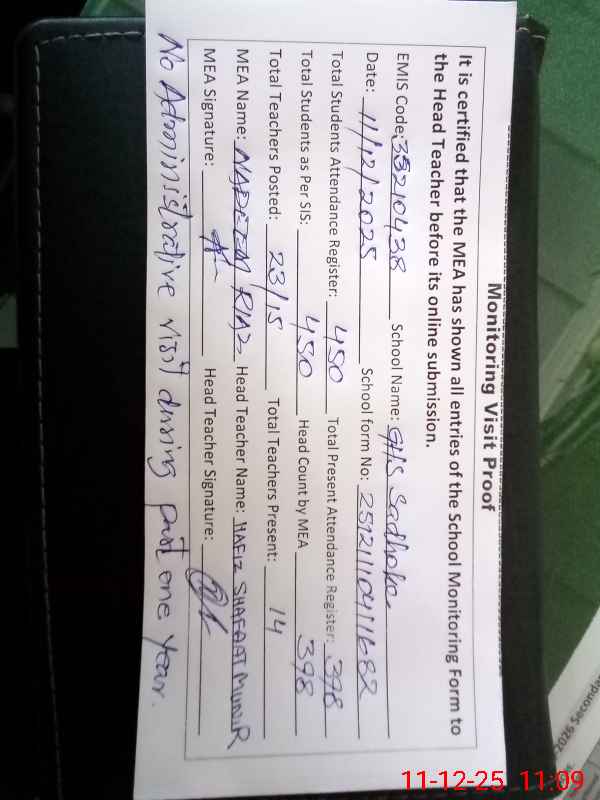 Monitoring Visit Proof
It is certified that the MEA has shown all entries of the School Monitoring Form to
the Head Teacher before its online submission.
EMIS Code: 35210438 School Name: GHS Sadhoke
Date: 11/12/2025 School form No: 2512111041682
Total Students Attendance Register: 450 Total Present Attendance Register: 398
Total Students as Per SIS: 450 Head Count by MEA 398
Total Teachers Posted: 23/15 Total Teachers Present: 14
MEA Name: NADEEM RIAZ Head Teacher Name: HAFIZ SHAFAAT MUNIR
MEA Signature: Head Teacher Signature:
No Administrative visit during past one year.
2026 Secondary
11-12-25 11:09